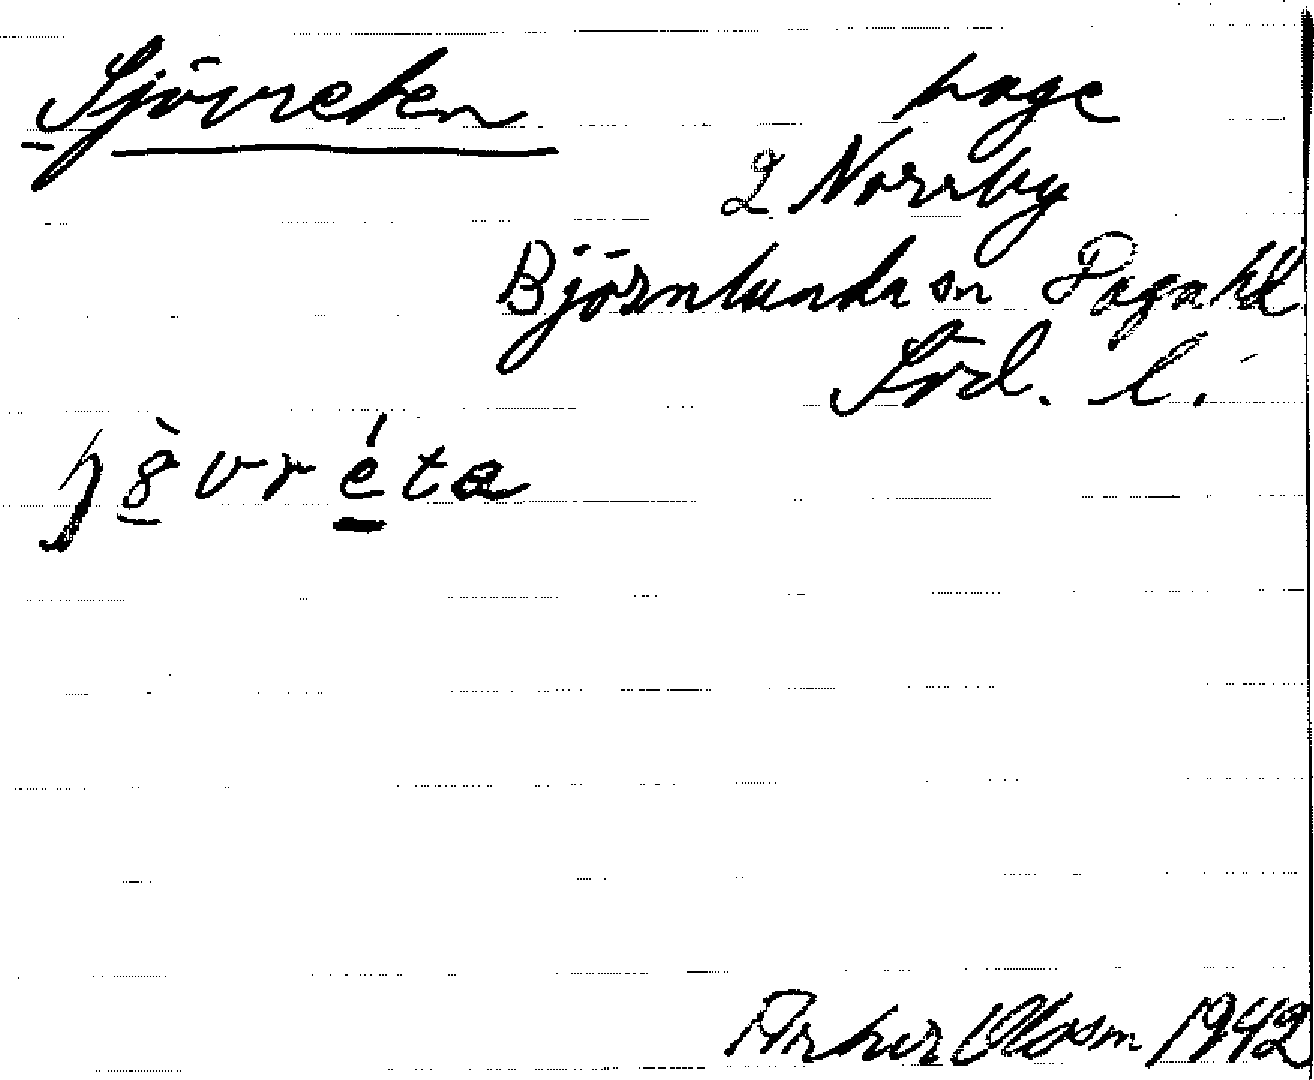 Sjövreten
hage
2 Norrby
Björnlunda sn Daga hd
Söd. l.
Arthur Olsson 1942